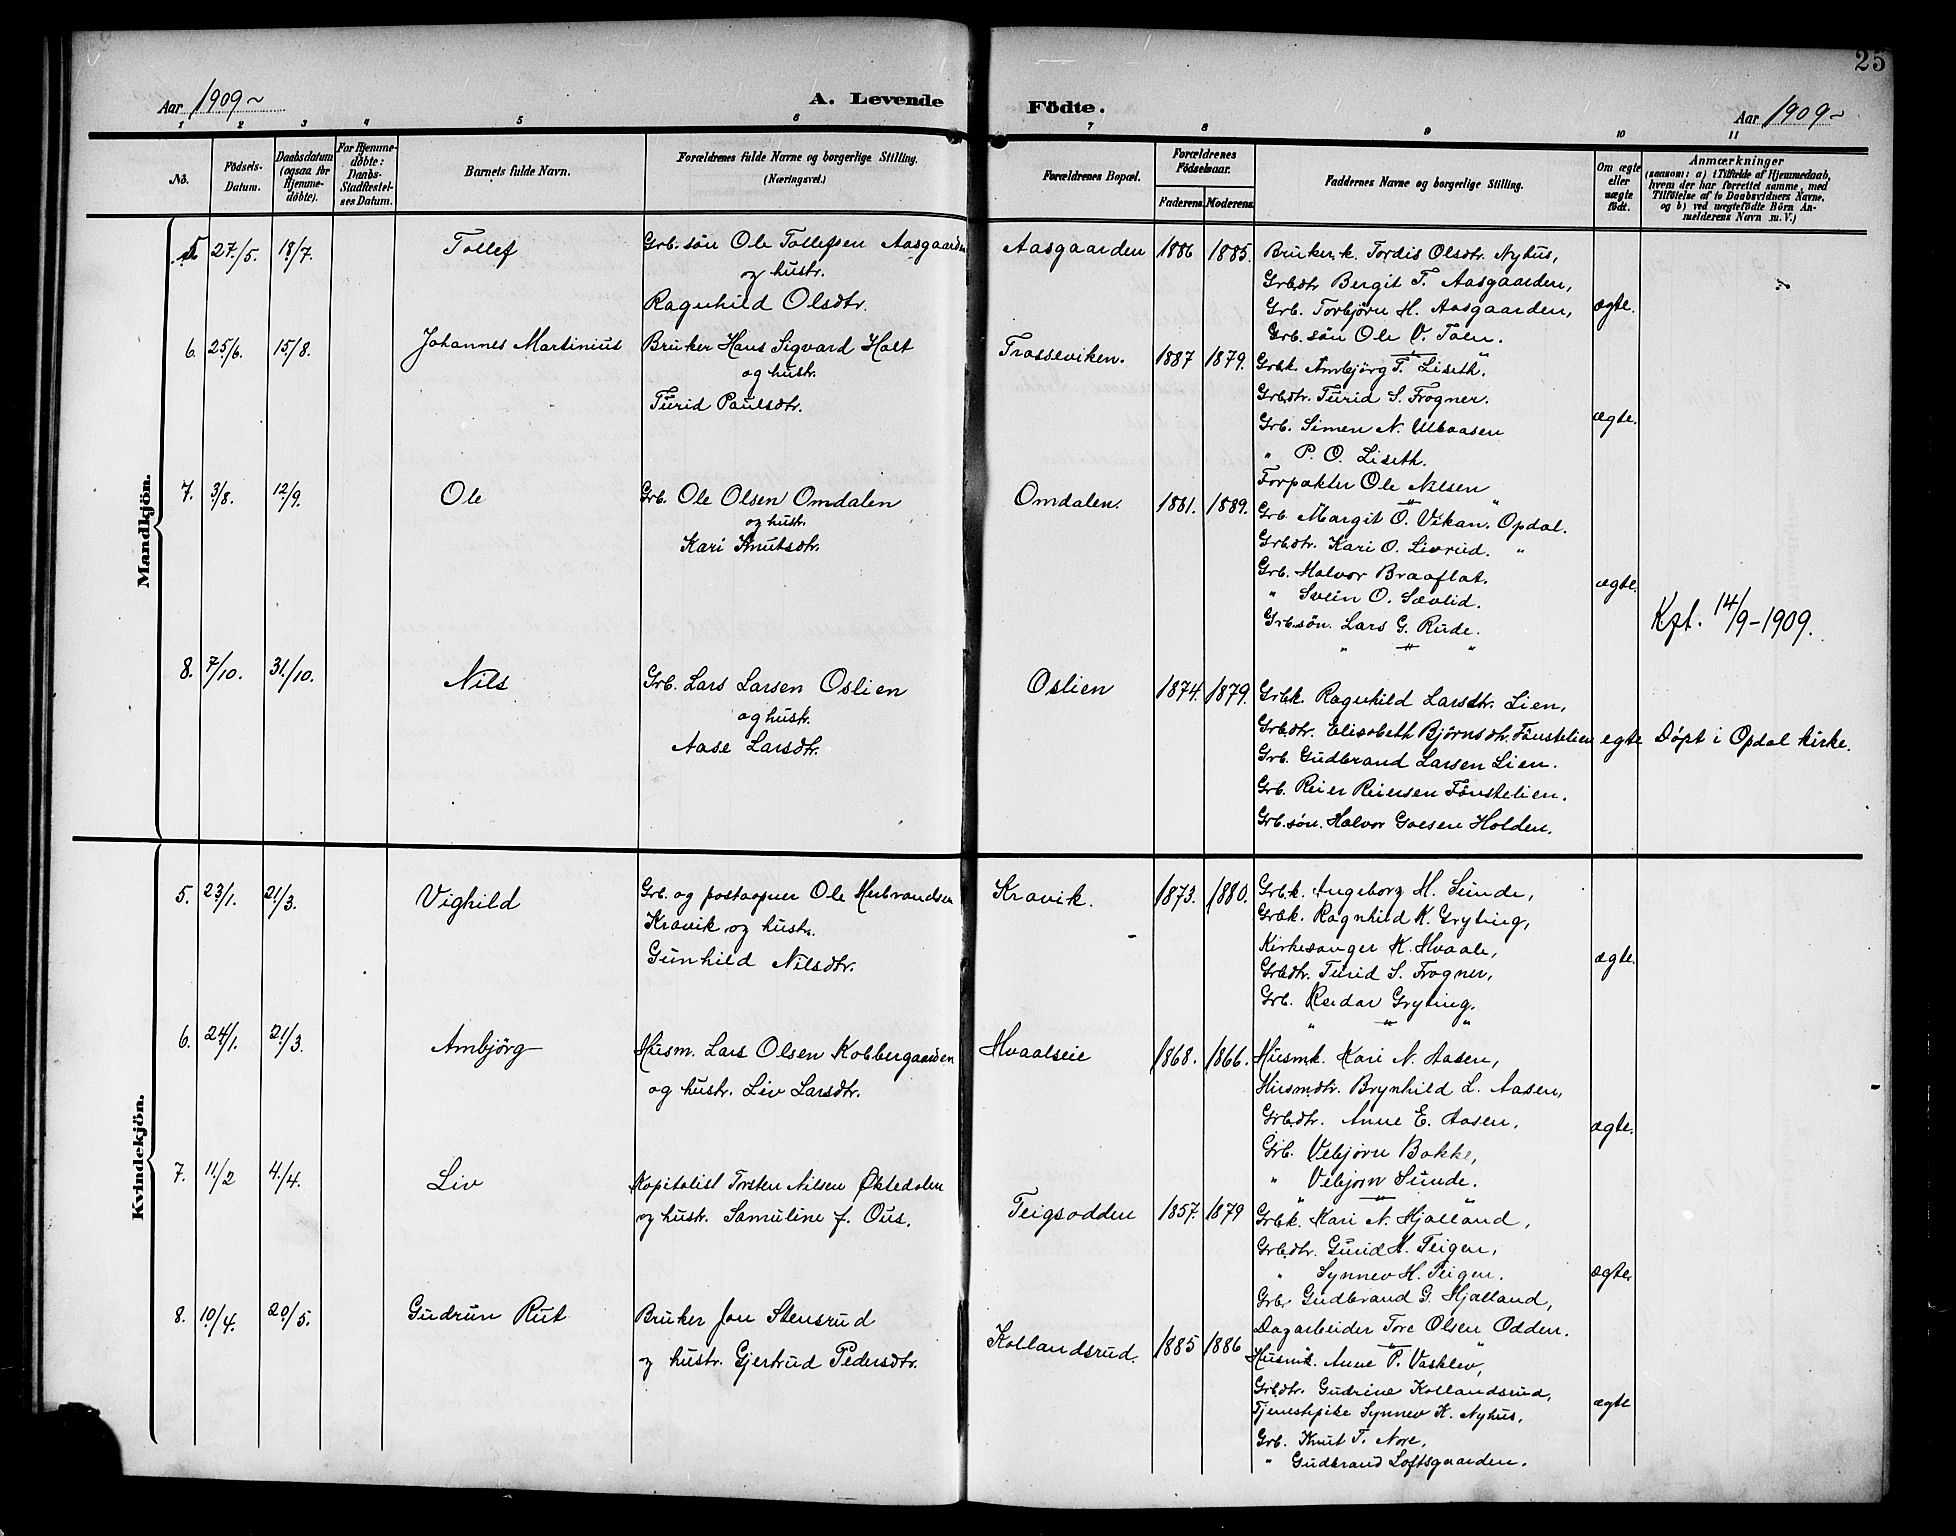 25
Aar 1909~
A. Levende Födte.
Aar 1909~
1 2 3 4 5 6 7 8 9 10 11
No.
Födsels-Datum.
Daabsdatum (ogsaa for Hjemme-döbte).
For Hjemme-döbte: Daabs-Stadfæstel-ses Datum.
Barnets fulde Navn.
Forældrenes fulde Navne og borgerlige Stilling.
(Næringsvei.)
Forældrenes Bopæl.
Forældrenes Födselsaar.
Faderens. Moderens.
Faddernes Navne og borgerlige Stilling.
Om ægte eller uægte födt.
Anmærkninger
(saasom: a) i Tilfælde af Hjemmedaab,
hvem der har forrettet samme, med
Tilföielse af to Daabsvidners Navne,
og b) ved uægtefödte Börn An-
melderens Navn m. V.)
Mandkjön.
5 27/5. 18/7. Tollef
Grb. søn Ole Tollefsen Aasgaarden
og hustr.
Ragnhild Olsdtr.
Aasgaarden 1886 1885.
Bruker k. Tordis Olsdtr. Nyhus,
Grbdtr Bergit T. Aasgaarden,
Grb. Torbjörn H. Aasgaarden,
Grb. søn Ole V. Toen.
ægte.
6. 25/6. 15/8. Johannes Martinius
Bruker Hans Sigvard Holt
og hustr.
Turid Paulsdtr.
Trosseviken. 1887 1879.
Grbk. Ambjörg T. Liseth.
Grbdtr. Turid S. Frogner.
Grb. Simen N. Ulbaasen
" P. O. Liseth.
Forpakter Ole Nilsen
ægte.
7. 3/8. 12/9. Ole
Grb. Ole Olsen Omdalen
og hustr.
Kari Knutsdtr.
Omdalen. 1881. 1889.
Grb. Margit O. Vikan. Opdal.
Grbdtr. Kari O. Livrud. "
Grb. Halvor Braaflat.
" Svein O. Sævlid.
Grb.søn. Lars G. Rude.
ægte.
Kpt. 14/9-1909.
8. 7/10. 31/10. Nils
Grb. Lars Larsen Oslien
og hustr.
Aase Larsdtr.
Oslien 1874. 1879.
Grbk. Ragnhild Larsdtr. Lien,
Grbdtr. Elisabeth Björnsdtr. Fönstelien
Grb. Gudbrand Larsen Lien.
Grb. Reier Reiersen Fönstelien.
Grb. søn. Halvor Goesen Holden.
egte
Döpt i Opdal kirke.
Kvindekjön.
5. 23/1. 21/3. Vighild
Grb. og postaapner Ole Herbrandsen
Kravik og hustr.
Gunhild Nilsdtr.
Kravik. 1873. 1880.
Grbk. Angeborg H. Sunde,
Grbk. Ragnhild K. Gryting,
Kirkesanger K. Hvaale,
Grbdtr. Turid S. Frogner,
Grb. Reidar Gryting.
ægte.
6. 24/1. 21/3. Ambjörg
Husm. Lars Olsen Kobbergaarden
og hustr. Liv Larsdtr.
Hvaalseie 1868. 1866.
Husmk. Kari N. Aasen,
Husmdtr. Brynhild L. Aasen,
Grbdtr. Anne E. Aasen,
Grb. Vebjörn Bakke,
" Vebjörn Sunde.
ægte.
7. 11/2 4/4. Liv
Kapitalist Torsten Nilsen Øktedalen
og hustr. Samuline f. Ous.
Teigsodden 1857. 1879
Grbk. Kari N. Hjalland,
Grbdtr. Gurid H. Teigen,
" Synnev H. Teigen.
Grb. Gudbrand G. Hjalland,
Dagarbeider Tore Olsen Odden.
ægte
8. 10/4. 20/5. Gudrun Rut
Bruker Jon Stensrud
og hustr. Gjertrud Pedersdtr.
Kollandsrud. 1885 1886
Husmk. Anne P. Vasklev,
Grbdtr. Gudrine Kollandsrud,
Tjenestpike Synnev K. Nyhus,
Grb. Knut T. Nore,
" Gudbrand Loftsgaarden.
ægte